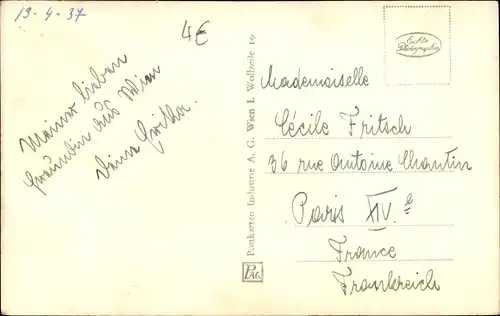 13-4-37
4€
Meiner lieben
Freundin aus Wien
Deine Gretka.
Postkarten Industrie A. G. Wien I. Wollzeile 19
Echte
Photographie
Mademoiselle
Cécile Fritsch
36 rue Antoine Chantin
Paris XIV.e
France
Frankreich
PAG